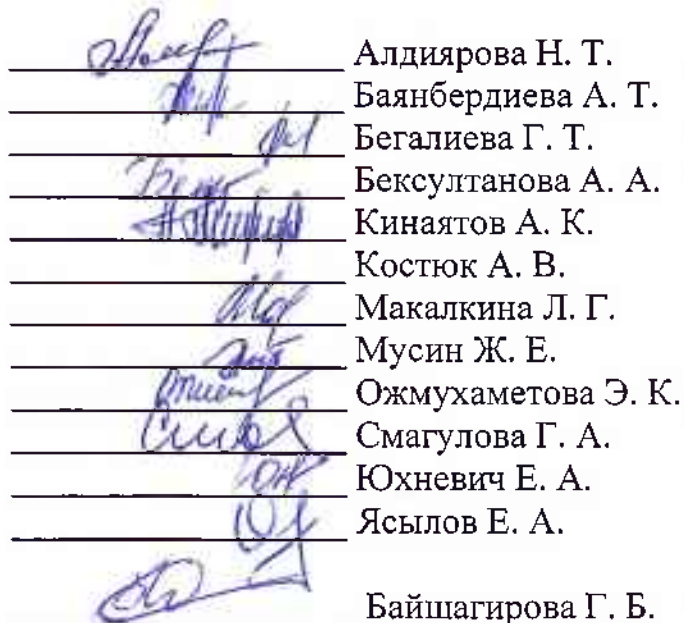 Алдиярова Н. Т.
Баянбердиева А. Т.
Бегалиева Г. Т.
Бексултанова А. А.
Кинаятов А. К.
Костюк А. В.
Макалкина Л. Г.
Мусин Ж. Е.
Ожмухаметова Э. К.
Смагулова Г. А.
Юхневич Е. А.
Ясылов Е. А.
Байщагирова Г. Б.